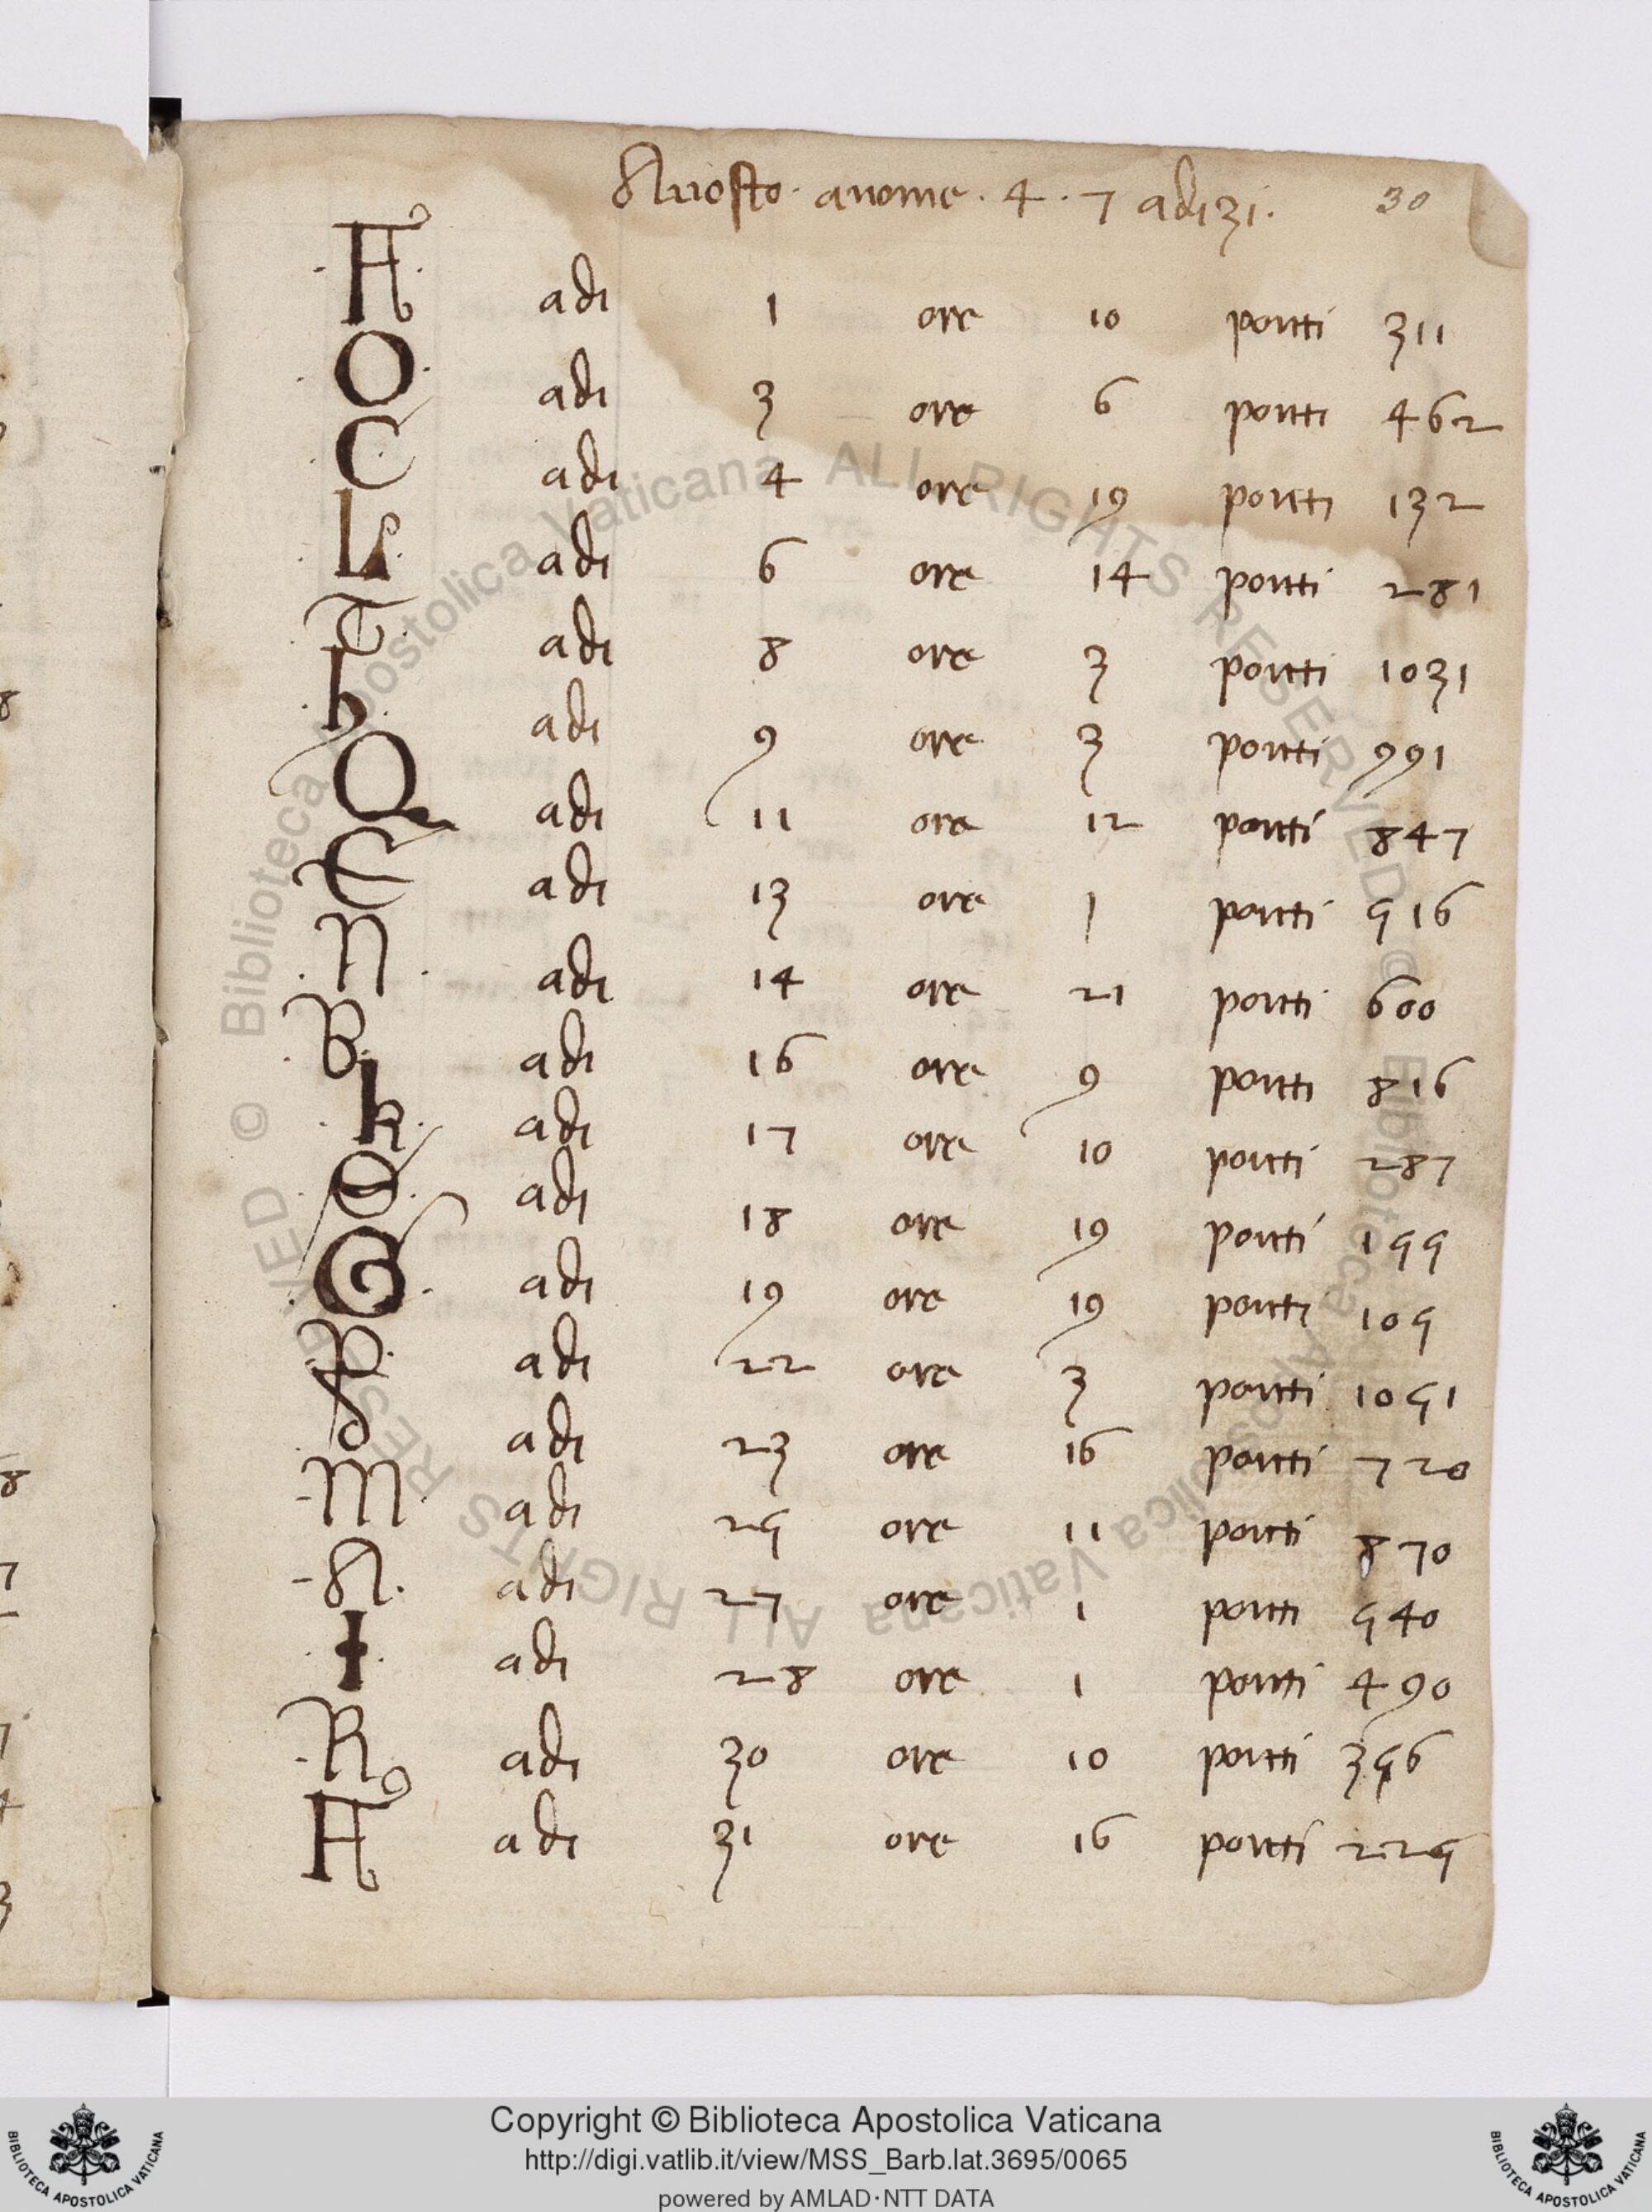 Auosto · anome · 4 · 7 adi 31 · 30
·A· adi 1 ore 10 pontti 311
·O· adi 3 ore 6 pontti 462
·C· adi 4 ore 19 pontti 132
·L· adi 6 ore 14 pontti 281
·T· adi 8 ore 3 pontti 1031
·b· adi 9 ore 3 pontti 991
Q adi 11 ore 12 pontti 847
E adi 13 ore 1 pontti 516
·N· adi 14 ore 21 pontti 600
·B· adi 16 ore 9 pontti 816
·k· adi 17 ore 10 pontti 287
adi 18 ore 19 pontti 155
·G· adi 19 ore 19 pontti 105
·P· adi 22 ore 3 pontti 1051
adi 23 ore 16 pontti 720
·M· adi 25 ore 11 pontti 870
adi 27 ore 1 pontti 540
·I· adi 28 ore 1 pontti 490
·R adi 30 ore 10 pontti 356
A adi 31 ore 16 pontti 225
© Biblioteca Apostolica Vaticana ALL RIGHTS RESERVED © Biblioteca Apostolica Vaticana ALL RIGHTS RESERVED
Copyright © Biblioteca Apostolica Vaticana
http://digi.vatlib.it/view/MSS_Barb.lat.3695/0065
powered by AMLAD·NTT DATA
BIBLIOTECA APOSTOLICA VATICANA
BIBLIOTECA APOSTOLICA VATICANA